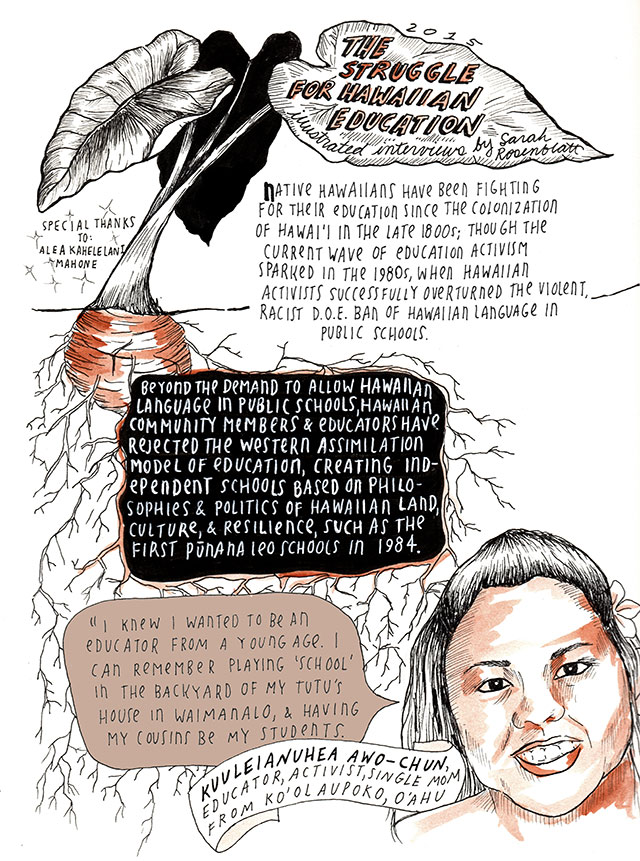 2015
THE
STRUGGLE
FOR HAWAIIAN
EDUCATION
illustrated interviews by Sarah
Rosenblatt
SPECIAL THANKS
TO:
ALEA KAHELELANI
MAHONE
NATIVE HAWAIIANS HAVE BEEN FIGHTING
FOR THEIR EDUCATION SINCE THE COLONIZATION
OF HAWAI'I IN THE LATE 1800s; THOUGH THE
CURRENT WAVE OF EDUCATION ACTIVISM
SPARKED IN THE 1980s, WHEN HAWAIIAN
ACTIVISTS SUCCESSFULLY OVERTURNED THE VIOLENT,
RACIST D.O.E. BAN OF HAWAIIAN LANGUAGE IN
PUBLIC SCHOOLS.
BEYOND THE DEMAND TO ALLOW HAWAIIAN
LANGUAGE IN PUBLIC SCHOOLS, HAWAIIAN
COMMUNITY MEMBERS & EDUCATORS HAVE
REJECTED THE WESTERN ASSIMILATION
MODEL OF EDUCATION, CREATING IND-
EPENDENT SCHOOLS BASED ON PHILO-
SOPHIES & POLITICS OF HAWAIIAN LAND,
CULTURE, & RESILIENCE, SUCH AS THE
FIRST PŪNANA LEO SCHOOLS IN 1984.
"I KNEW I WANTED TO BE AN
EDUCATOR FROM A YOUNG AGE. I
CAN REMEMBER PLAYING 'SCHOOL'
IN THE BACKYARD OF MY TUTU'S
HOUSE IN WAIMANALO, & HAVING
MY COUSINS BE MY STUDENTS.
KUULEIANUHEA AWO-CHUN,
EDUCATOR, ACTIVIST, SINGLE MOM
FROM KO'OLAUPOKO, O'AHU